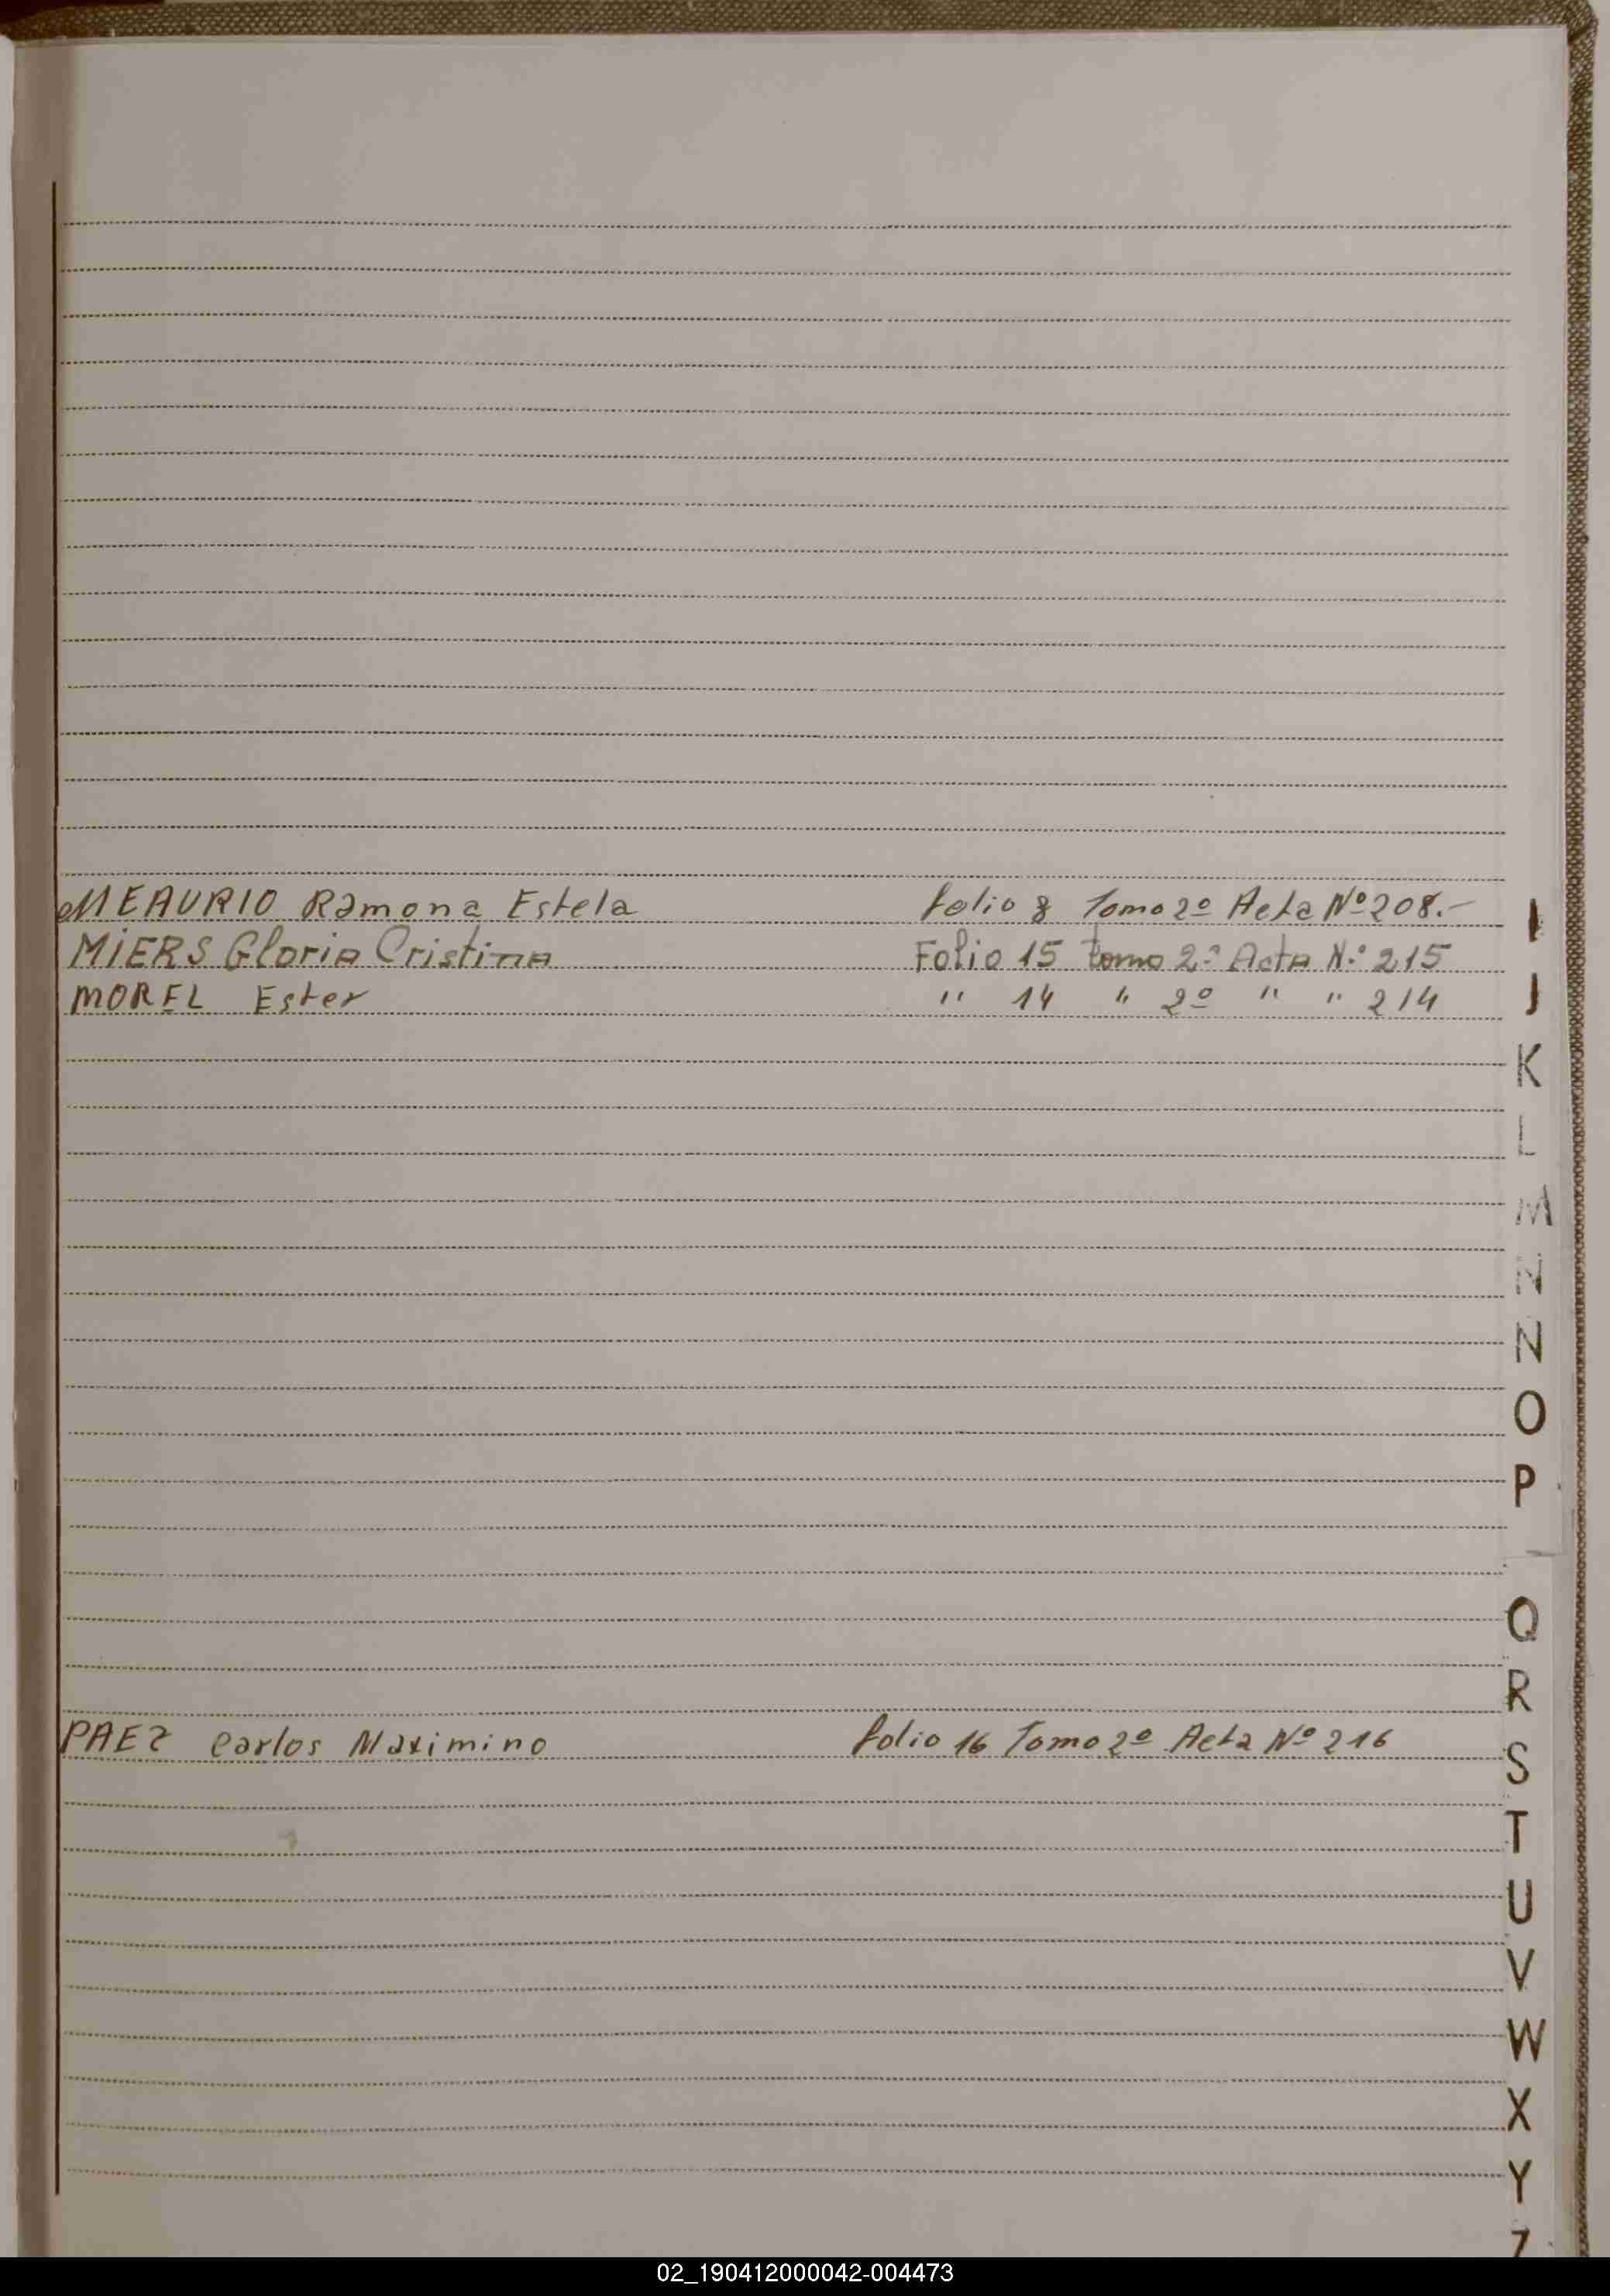 MEAURIO Ramona Estela folio 8 Tomo 2º Acta Nº 208.-
MiERS Gloria Cristina Folio 15 tomo 2º Acta N.º 215
MOREL Ester " 14 " 2º " " 214
PAEZ Carlos Maximino folio 16 Tomo 2º Acta Nº 216
I
J
K
L
M
N
N
O
P
Q
R
S
T
U
V
W
X
Y
Z
02_190412000042-004473